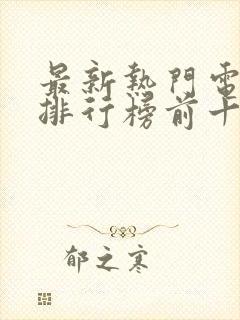 最新熱門電
排行榜前十
郁之寒